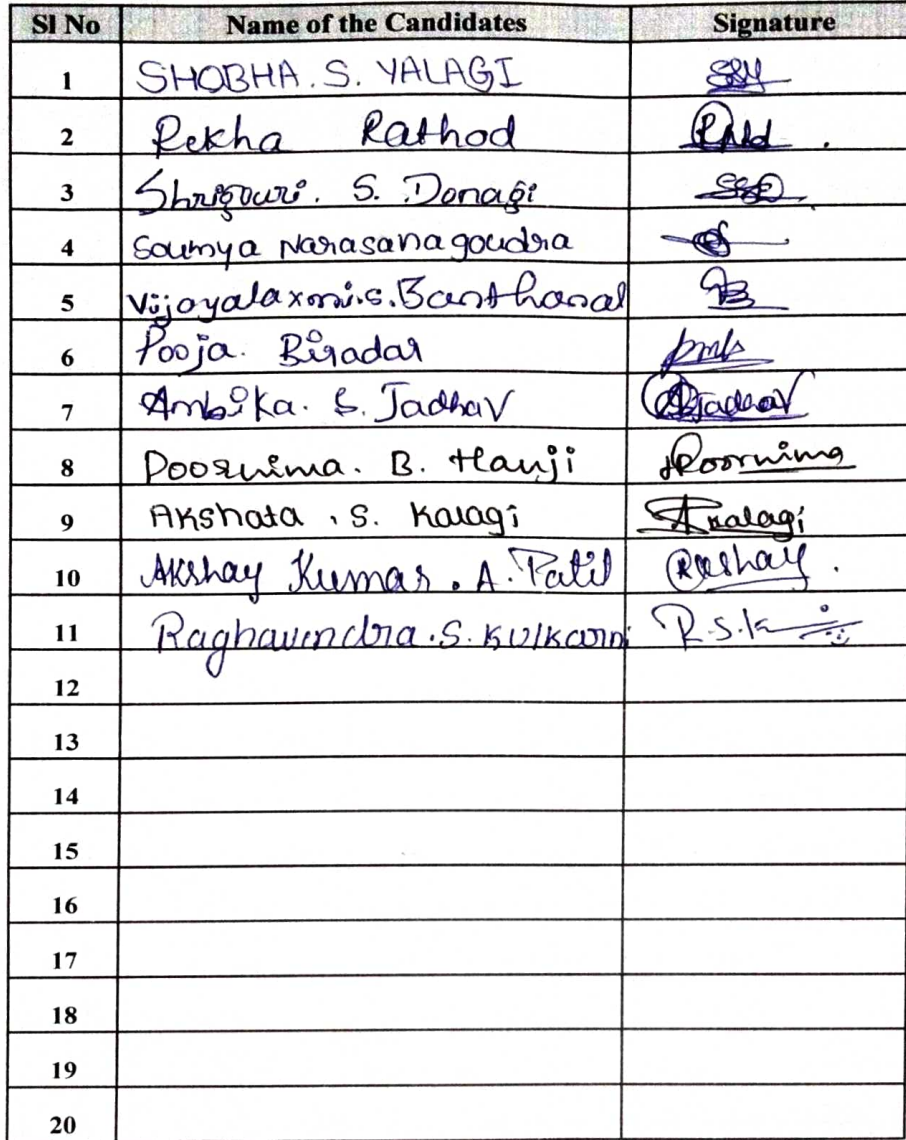 Sl No Name of the Candidates Signature
1 SHOBHA. S. YALAGI SSY
2 Rekha Rathod
3 Shrigouri. S. Donagi SSD
4 Soumya Narasanagoudra
5 Vijayalaxmi.S. Banthanal
6 Pooja. Biradar pmb
7 Ambika. S. Jadhav AJadhav
8 Poornima. B. Hanji Poornima
9 Akshata . S. Kalagi Akalagi
10 Akshay Kumar. A. Patil Akshay.
11 Raghavendra.S. Kulkarni R.S.K
12
13
14
15
16
17
18
19
20